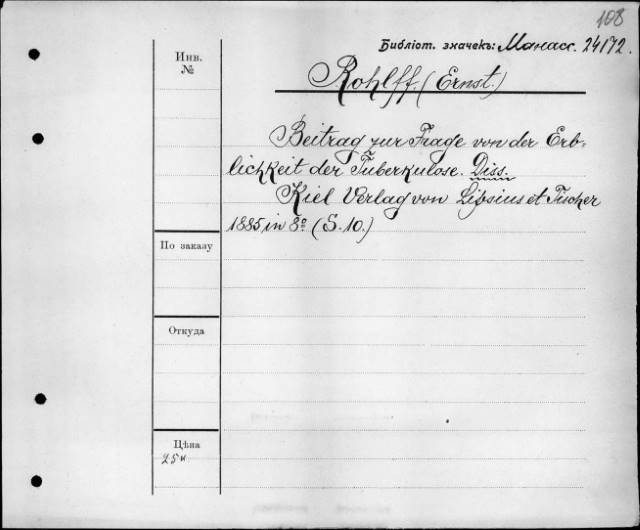 108
Библіот. значекъ: Манасс. 24172.
Инв.
№
Rohlff. (Ernst.)
Beitrag zur Frage von der Erb-
lichkeit der Tuberkulose. Diss.
Kiel Verlag von Lipsius et Tischer
1885 in 8º (S. 10.)
По заказу
Откуда
Цѣна
25к